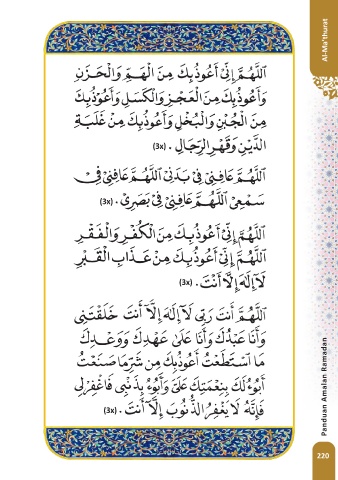 Al-Ma'thurat
اَللّٰهُمَّ إِنِّيْ أَعُوْذُبِكَ مِنَ الْهَمِّ وَالْحَزَنِ
وَأَعُوْذُبِكَ مِنَ الْعَجْزِ وَالْكَسَلِ وَأَعُوْذُبِكَ
مِنَ الْجُبْنِ وَالْبُخْلِ وَأَعُوْذُبِكَ مِنْ غَلَبَةِ
الدَّيْنِ وَقَهْرِ الرِّجَالِ . (3x)
اَللّٰهُمَّ عَافِنِيْ فِيْ بَدَنِيْ اَللّٰهُمَّ عَافِنِيْ فِيْ
سَمْعِيْ اَللّٰهُمَّ عَافِنِيْ فِيْ بَصَرِيْ . (3x)
اَللّٰهُمَّ إِنِّيْ أَعُوْذُبِكَ مِنَ الْكُفْرِ وَالْفَقْرِ
اَللّٰهُمَّ إِنِّيْ أَعُوْذُبِكَ مِنْ عَذَابِ الْقَبْرِ
لَآ إِلٰهَ إِلَّآ أَنْتَ . (3x)
اَللّٰهُمَّ أَنْتَ رَبِّيْ لَآ إِلٰهَ إِلَّآ أَنْتَ خَلَقْتَنِيْ
وَأَنَا عَبْدُكَ وَأَنَا عَلَىٰ عَهْدِكَ وَوَعْدِكَ
مَا اسْتَطَعْتُ أَعُوْذُبِكَ مِنْ شَرِّ مَا صَنَعْتُ
أَبُوْءُ لَكَ بِنِعْمَتِكَ عَلَيَّ وَأَبُوْءُ بِذَنْبِيْ فَاغْفِرْلِيْ
فَإِنَّهُ لَا يَغْفِرُ الذُّنُوْبَ إِلَّآ أَنْتَ . (3x)
Panduan Amalan Ramadan
220